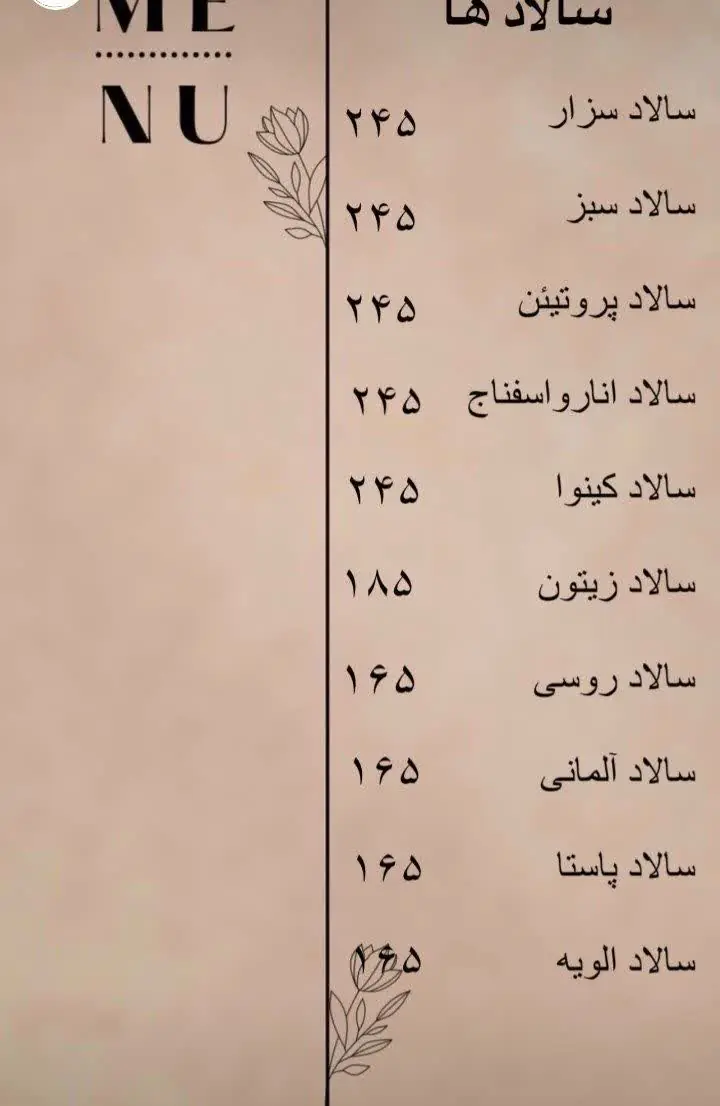 ME
NU
سالاد ها
سالاد سزار ۲۴۵
سالاد سبز ۲۴۵
سالاد پروتیئن ۲۴۵
سالاد انارواسفناج ۲۴۵
سالاد کینوا ۲۴۵
سالاد زیتون ۱۸۵
سالاد روسی ۱۶۵
سالاد آلمانی ۱۶۵
سالاد پاستا ۱۶۵
سالاد الویه ۱۶۵